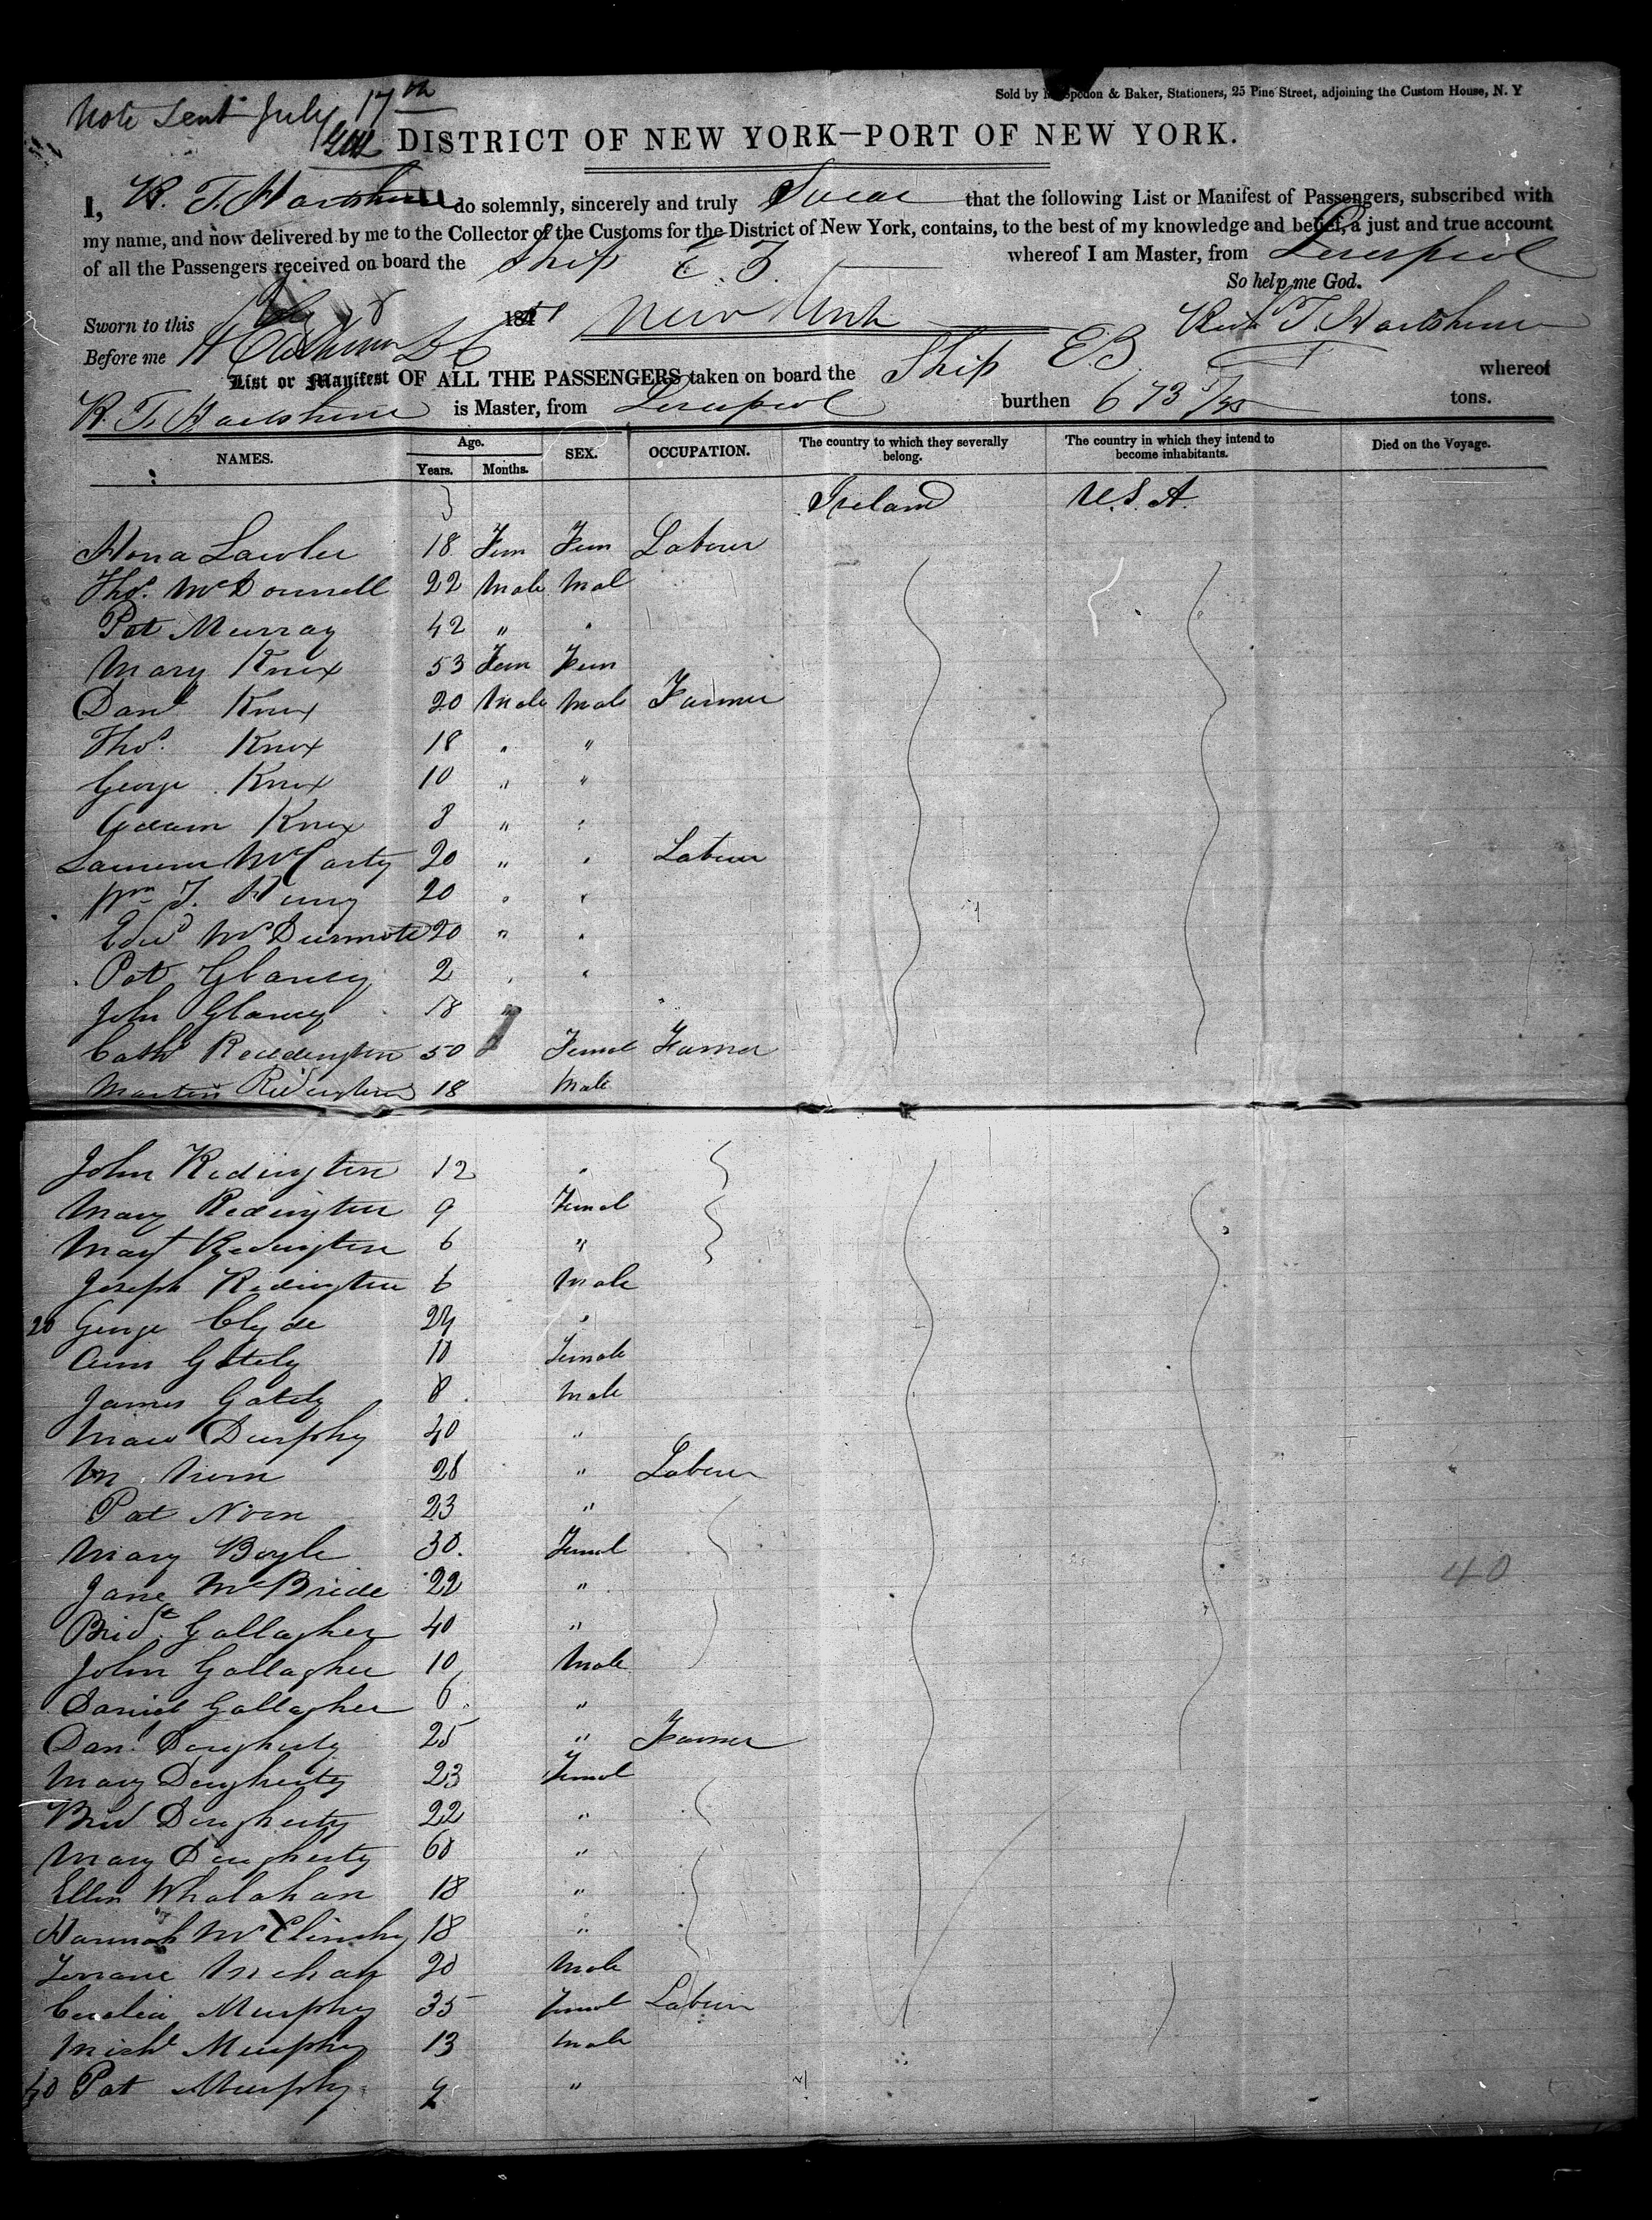 Note Sent July 17th
Sold by & Baker, Stationers, 25 Pine Street, adjoining the Custom House, N. Y
DISTRICT OF NEW YORK—PORT OF NEW YORK.
I, R. T. Hartshorne do solemnly, sincerely and truly Swear that the following List or Manifest of Passengers, subscribed with
my name, and now delivered by me to the Collector of the Customs for the District of New York, contains, to the best of my knowledge and belief, a just and true account
of all the Passengers received on board the Ship E. Z. whereof I am Master, from Liverpool
So help me God.
Sworn to this July 8 184 New York
Before me
List or Manifest OF ALL THE PASSENGERS taken on board the Ship E. whereof
R. T. Hartshorne is Master, from Liverpool burthen 673 /95 tons.
NAMES. Age. Years. Months. SEX. OCCUPATION. The country to which they severally belong. The country in which they intend to become inhabitants. Died on the Voyage.
Ireland U.S.A.
Hona Lawler 18 Fem Fem Labourer
Thos. McDonnell 22 Male Mal
Pat Murray 42 " "
Mary Knox 53 Fem Fem
Danl Knox 20 Male Male Farmer
Thos. Knox 18 " "
George Knox 10 " "
Adam Knox 8 " "
McCarty 20 " " Labour
Wm J. 20 " "
Edwd McDermott 20 " "
Pat Glancy 2 " "
John Glancy 18 "
Cathe Reddington 50 Femal Farmer
Martin Redington 18 Male
John Redington 12 "
Mary Redington 9 Femal
Margt Redington 6 "
Joseph Redington 6 Male
20 George Clyde 24 "
Ann Gately 10 Female
James Gately 8 Male
Durphy 40 "
M Norn 28 " Labourer
Pat Norn 23 "
Mary Boyle 30. Femal
Jane McBride 22 "
40
Bridt. Gallagher 40 "
John Gallagher 10 Male
Daniel Gallagher 6 "
Danl. Dougherty 25 " Farmer
Mary Dougherty 23 Femal
Brid Dougherty 22 "
Mary Dougherty 60 "
Ellen Whalahan 18 "
Hannah McClinchy 18 "
Mehan 20 Male
Murphy 35 Femal Labour
Michl Murphy 13 Male
40 Pat Murphy "